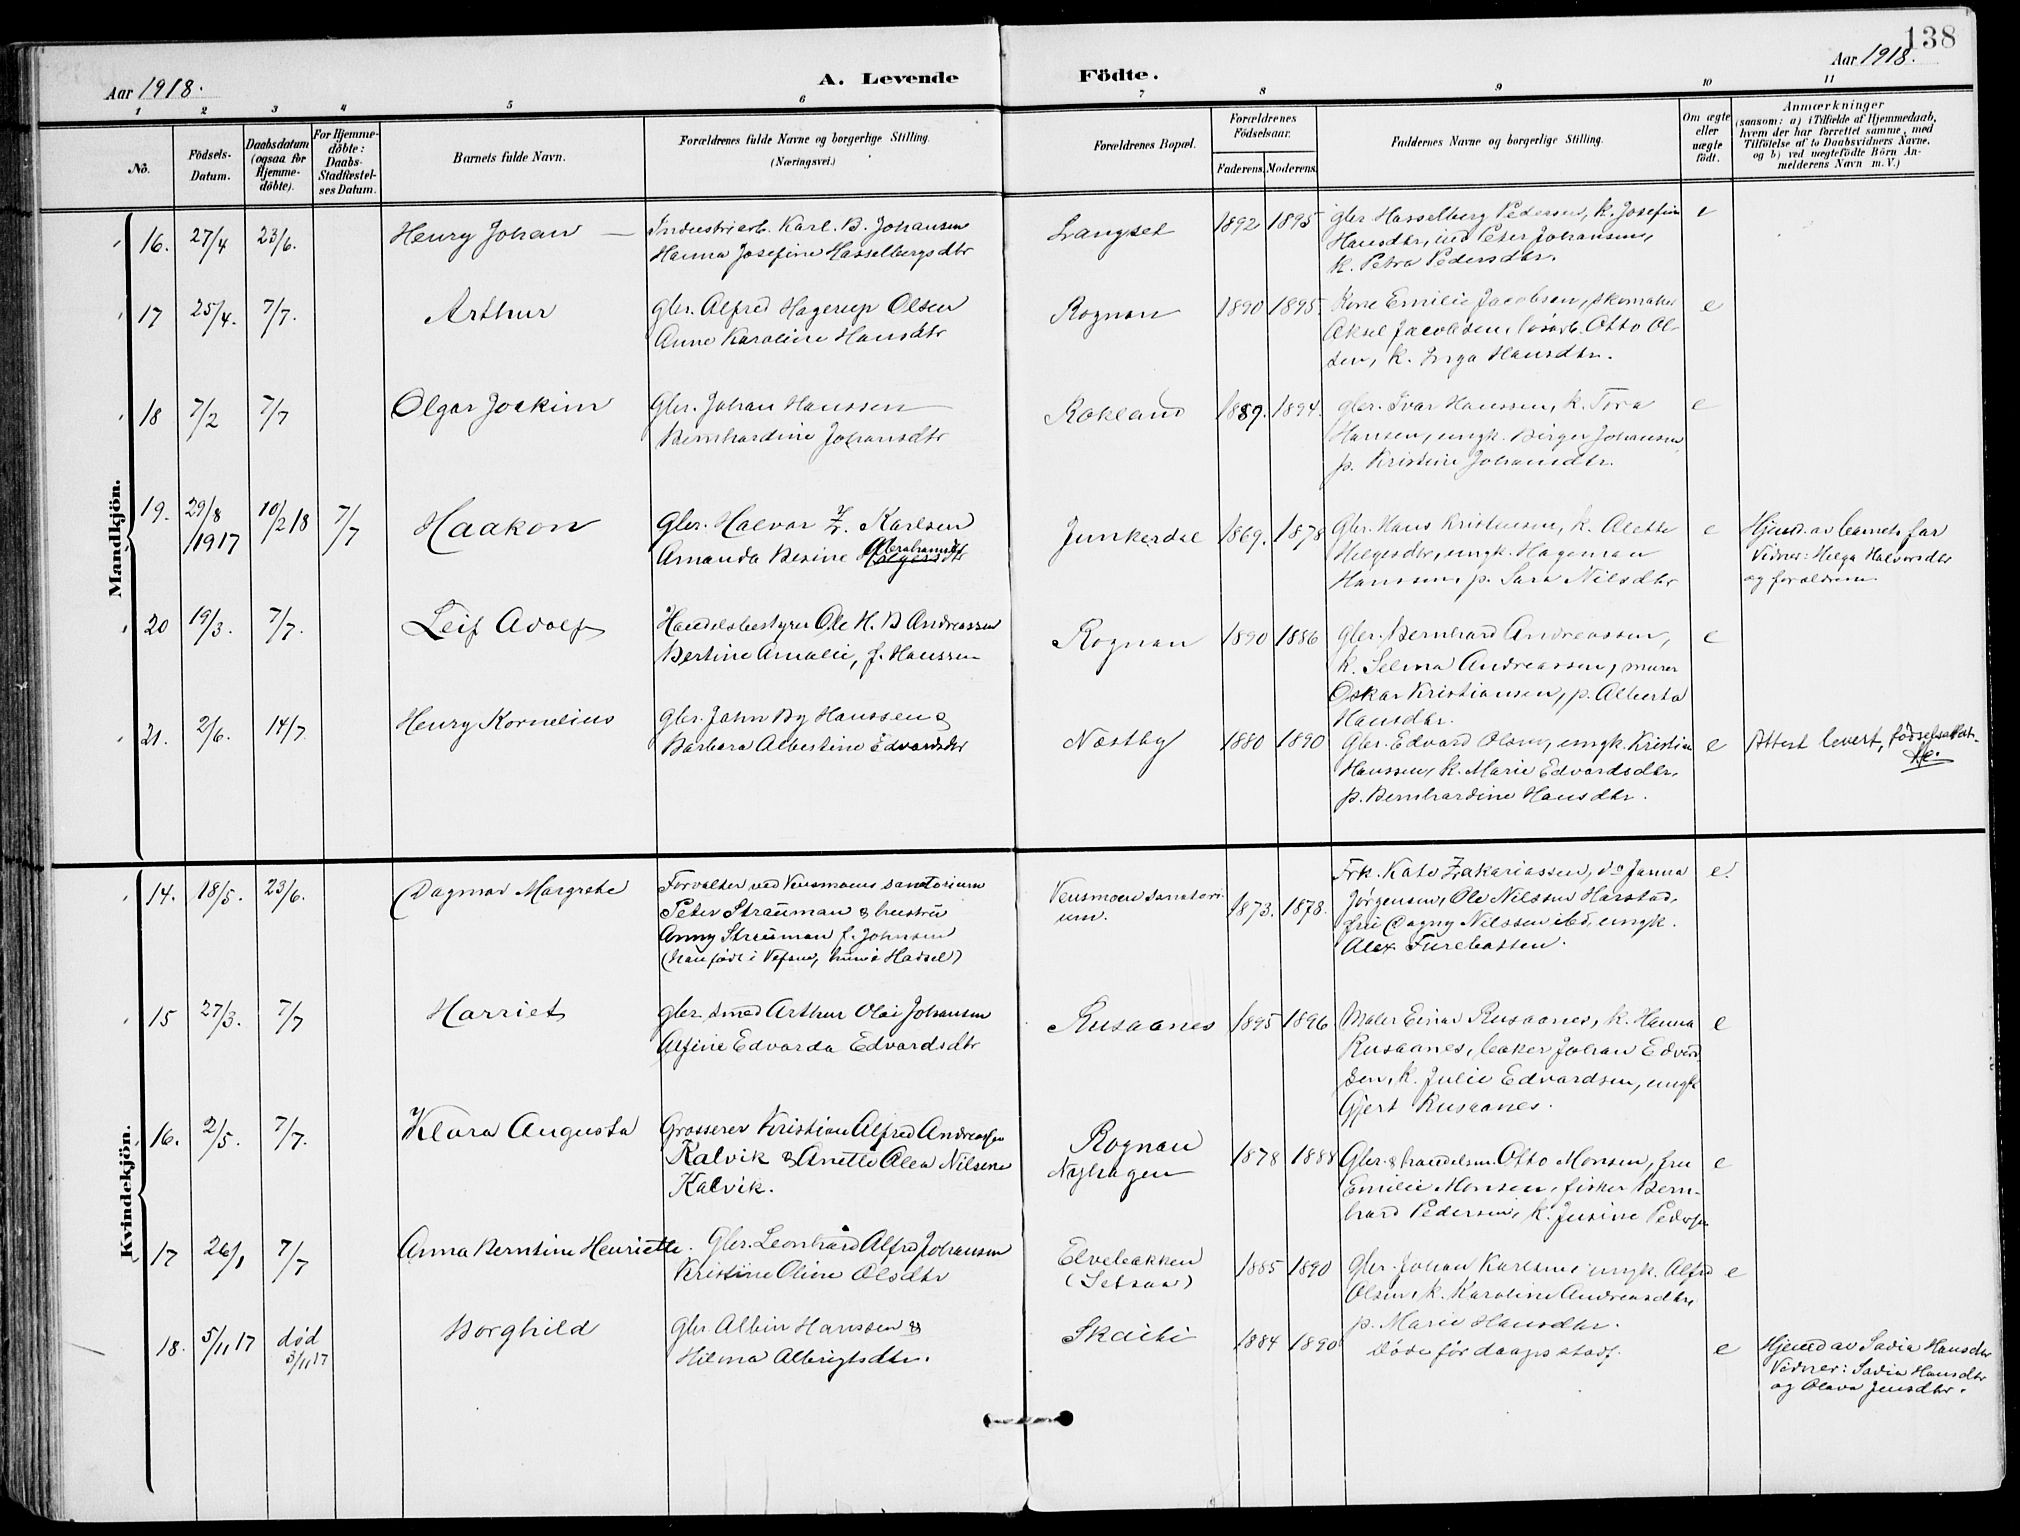 138
Aar 1918.
A. Levende Födte.
Aar 1918.
1 2 3 4 5 6 7 8 9 10 11
No.
Födsels-Datum.
Daabsdatum (ogsaa for Hjemme-döbte).
For Hjemme-döbte: Daabs-Stadfæstel-ses Datum.
Barnets fulde Navn.
Forældrenes fulde Navne og borgerlige Stilling.
(Næringsvei.)
Forældrenes Bopæl.
Forældrenes Födselsaar.
Faderens. Moderens.
Faddernes Navne og borgerlige Stilling.
Om ægte eller uægte födt.
Anmærkninger
(saasom: a) i Tilfælde af Hjemmedaab,
hvem der har forrettet samme, med
Tilföielse af to Daabsvidners Navne,
og b) ved uægtefödte Börn An-
melderens Navn m. V.)
Mandkjön.
16. 27/4 23/6. Henry Johan — Industriarb. Karl. B. Johansen Langset 1892 1895 gbr Hasselberg Pedersen, k. Josefine e
Hanna Josefine Hasselbergsdtr Hansdtr, Peter Johansen,
k. Petra Pedersdtr.
17 25/4. 7/7. Arthur gbr. Alfred Hagerup Olsen Rognan 1890 1895. Kone Emilie Jacobsen, skomaker e
Anne Karoline Hansdtr Aksel Jacobsen, løsarb. Otto Ol-
sen, k. Inga Hansdtr.
18 7/2 7/7 Olgar Joakim Gbr. Johan Hanssen Rokland 1889. 1894. gbr. Ivar Hanssen, k. Tora e
Bernhardine Johansdtr Hansen, ungk. Birger Johansen,
p. Kristine Johansdtr.
19. 29/8 /1917 10/2 18 7/7 Haakon Gbr. Halvar Z. Karlsen Junkerdal 1869. 1878 Gbr. Hans Kristensen, k. Alette e Hjemd. av barnets far
Amanda Besine Abrahamsdtr Helgesdtr, ungk. Hageman Vidner: Helga Halvorsdtr
Hanssen, p. Sara Nilsdtr og forældrene.
20 19/3. 7/7. Leif Adolf Handelsbestyrer Ole H. B Andreassen Rognan 1890 1886 gbr. Bernhard Andreassen, e
Bertine Amalie, f. Hanssen k. Selma Andreassen, murer
Oskar Kristiansen, p. Alberta
Hansdtr.
21. 2/6. 14/7. Henry Kornelius Gbr. John By Hanssen & Næstby 1880 1890 Gbr. Edvard Olsen, ungk. Kristian e Attest levert, fødselsatt-
Barbara Albertine Edvardsdtr Hanssen, k. Marie Edvardsdtr,
p. Bernhardine Hansdtr.
Kvindekjön.
14. 18/5. 23/6. Dagmar Margrete Forvalter ved Vensmoens sanatorium Vensmoen sanatori- 1873. 1878. Frk. Kate Zakariassen, do Janna e.
Peter Strauman & hustru um. Jørgensen, Ole Nilssen Harstad,
Anny Strauman f. Johnsen fru Dagny Nilssen ibd, ungk.
(han født i Vefsen, hun i Hadsel) Alex Furebotten.
15 27/3. 7/7 Harriet gbr. smed Arthur Olai Johansen Rusaanes 1895 1896. Maler Einar Rusaanes, k. Hanna e
Alfine Edvarda Edvardsdtr Rusaanes, baker Johan Edvard-
sen, k. Julie Edvardsen, ungk
Gjert Rusaanes.
16. 2/5. 7/7. Klara Augusta Grosserer Kristian Alfred Andreassen Rognan 1878 1888 Gbr. & handelsm. Otto Monsen, fru e
Kalvik & Anette Alea Nilsine Nyhagen Emilie Monsen, fisker Bern-
Kalvik. hard Pedersen, k. Jusine Pedersen
17 26/1 7/7 Anna Berntine Henriette. Gbr. Leonhard Alfred Johansen Elvebakken 1885 1890 Gbr. Johan Karlsen ungk. Alfred e
Kristine Oline Olsdtr (Setsaa) Olsen, k. Karoline Andreasdtr,
p. Marie Hansdtr.
18. 5/11 17 død 5/11 17 Borghild Gbr Albin Hanssen & Skaiti 1884 1890 Døde før daaps stadf. e Hjemd av Sadia Hansdtr
Hilma Albrigtsdtr. Vidner: Sadia Hansdtr
og Olava Jensdtr.